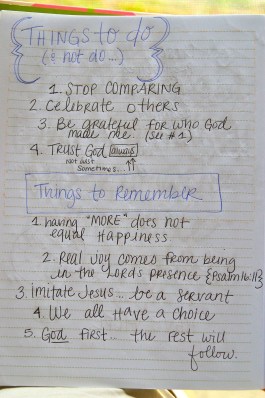 THINGS to do
(& not do...)
1. STOP COMPARING
2. Celebrate others
3. Be grateful for who God
made me. (see #1)
4. TRUST God always
Not just
sometimes.
Things to Remember
1. having "MORE" does not
equal Happiness
2. Real joy comes from being
in the Lords presence {Psalm 16:11}
3. imitate Jesus.. be a servant
4. We all Have a choice
5. God first... the rest will
follow.